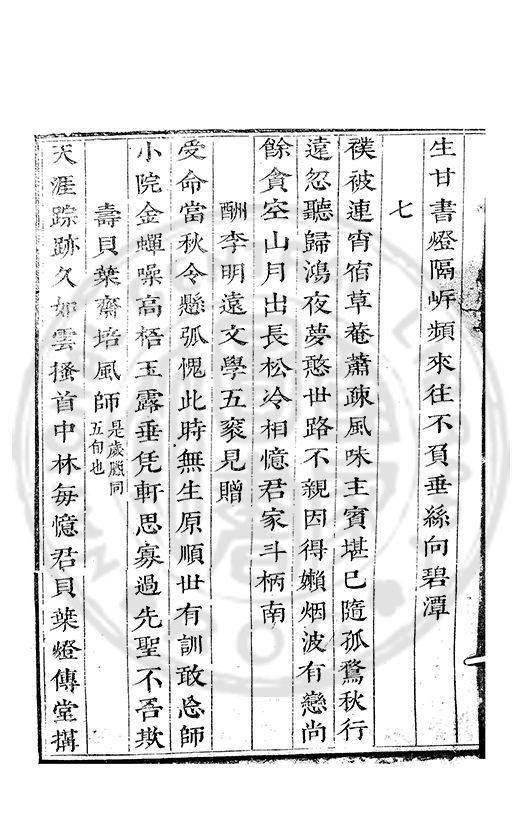 生甘書燈隔岍頻來往不負垂絲向碧潭
七
襆被連宵宿草菴蕭疎風味主賓堪已隨孤鶩秋行
遠忽聽歸鴻夜夢憨世路不親因得嬾烟波有戀尚
餘貪空山月出長松冷相憶君家斗柄南
酬李明遠文學五袠見贈
受命當秋令懸弧愧此時無生原順世有訓敢忘師
小院金蟬噪高梧玉露垂凭軒思寡過先聖不吾欺
壽貝葉齋培風師是歲臘同五旬也
天涯踪跡久如雲搔首中林每憶君貝葉燈傳堂搆